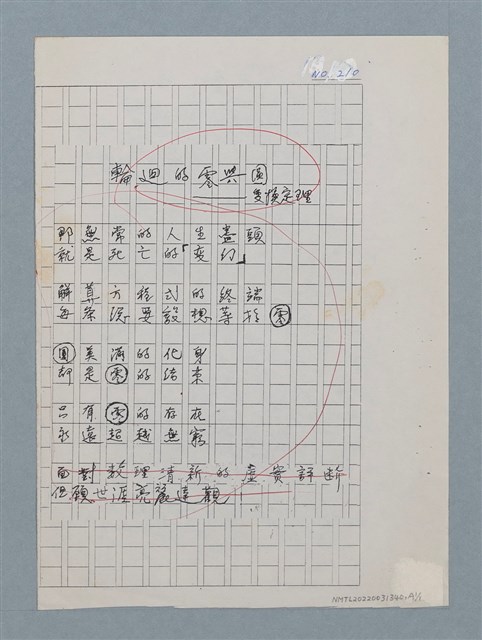 NO. 210
輪迴的零與圓
——变換定理
那無常的人生盡頭
就是死亡的「変幻」
解算方程式的終端
每条總要設想等於零
圓美滿的化身
却是零的結束
只有零的存在
永遠超越無窮
面對数理清新的虛實評断
但願世涯亮麗達觀！
NMTL20220031340-A1/1